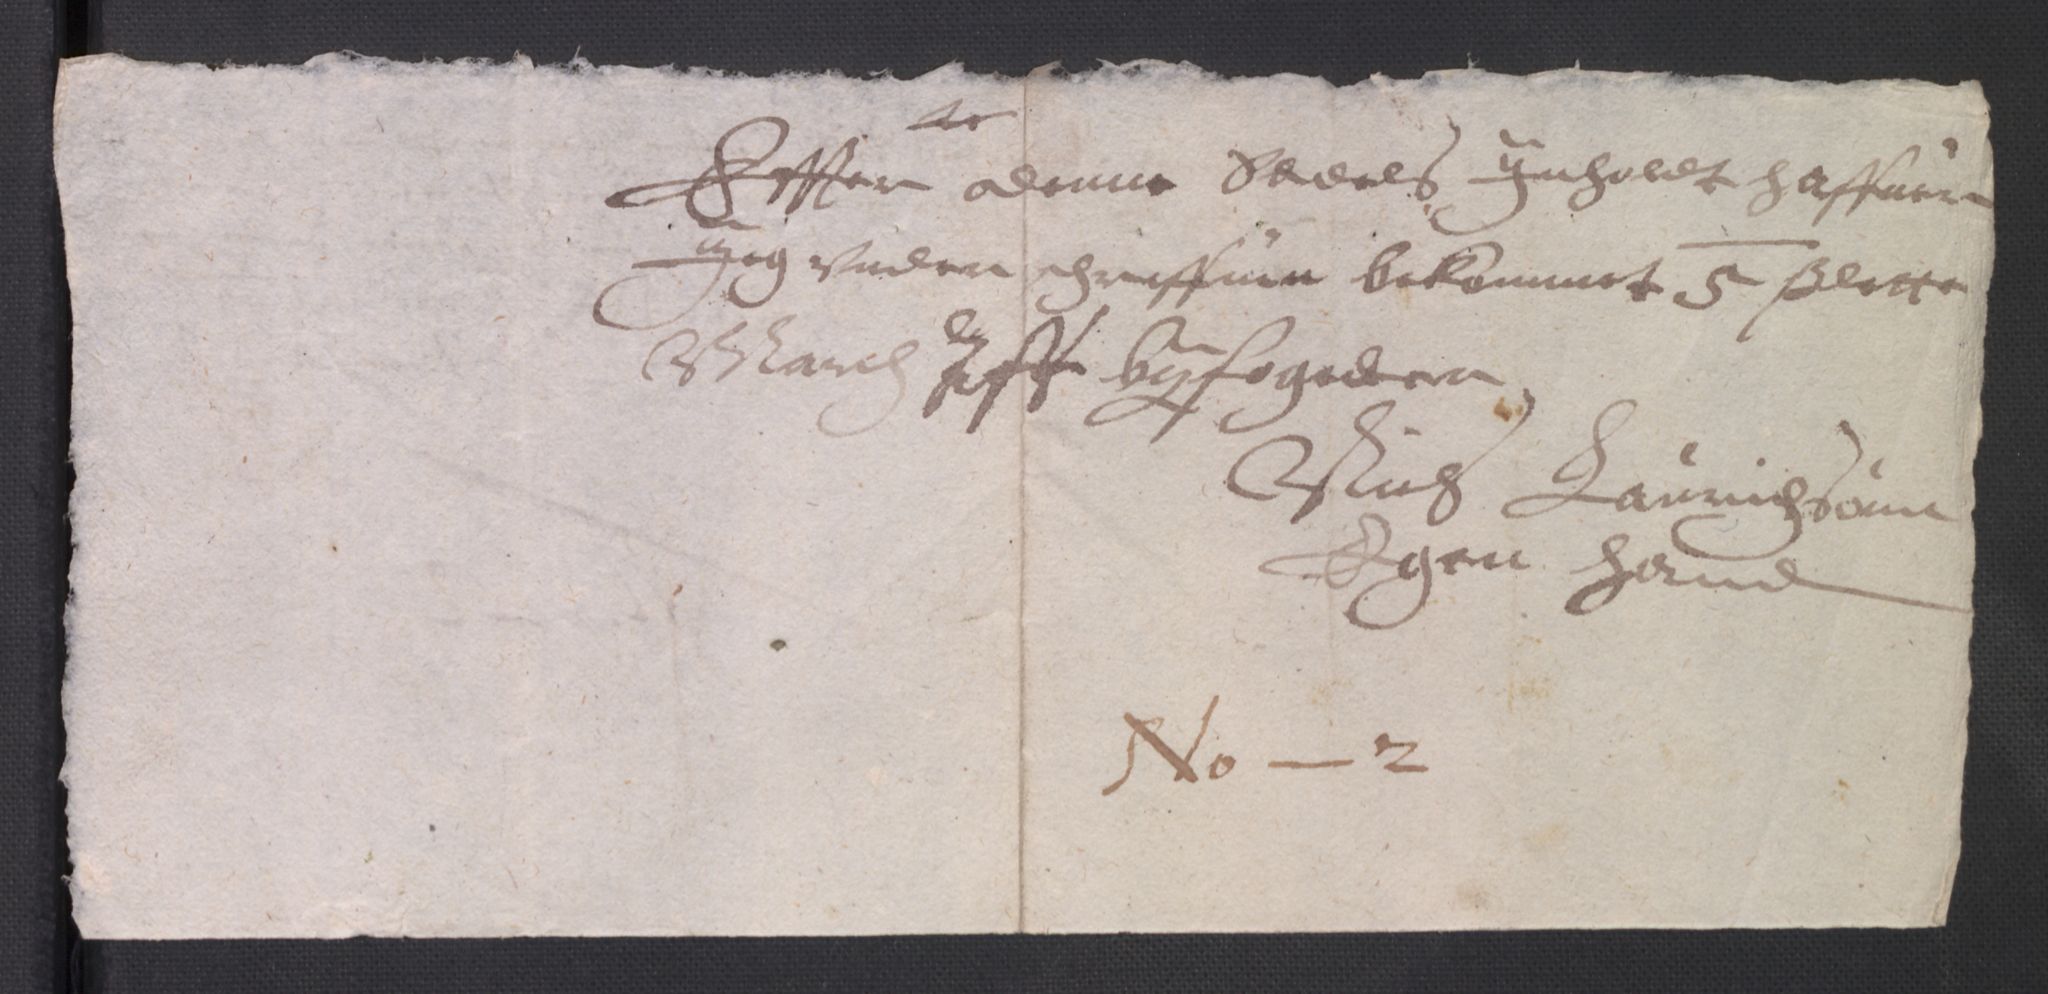 Effter denne Sedels Inholdt haffuer
Jeg vnderschreffuen bekommet 5 slette
March Aff byfogeden
Niels Lauridsönn
Egen Hand
No — 2